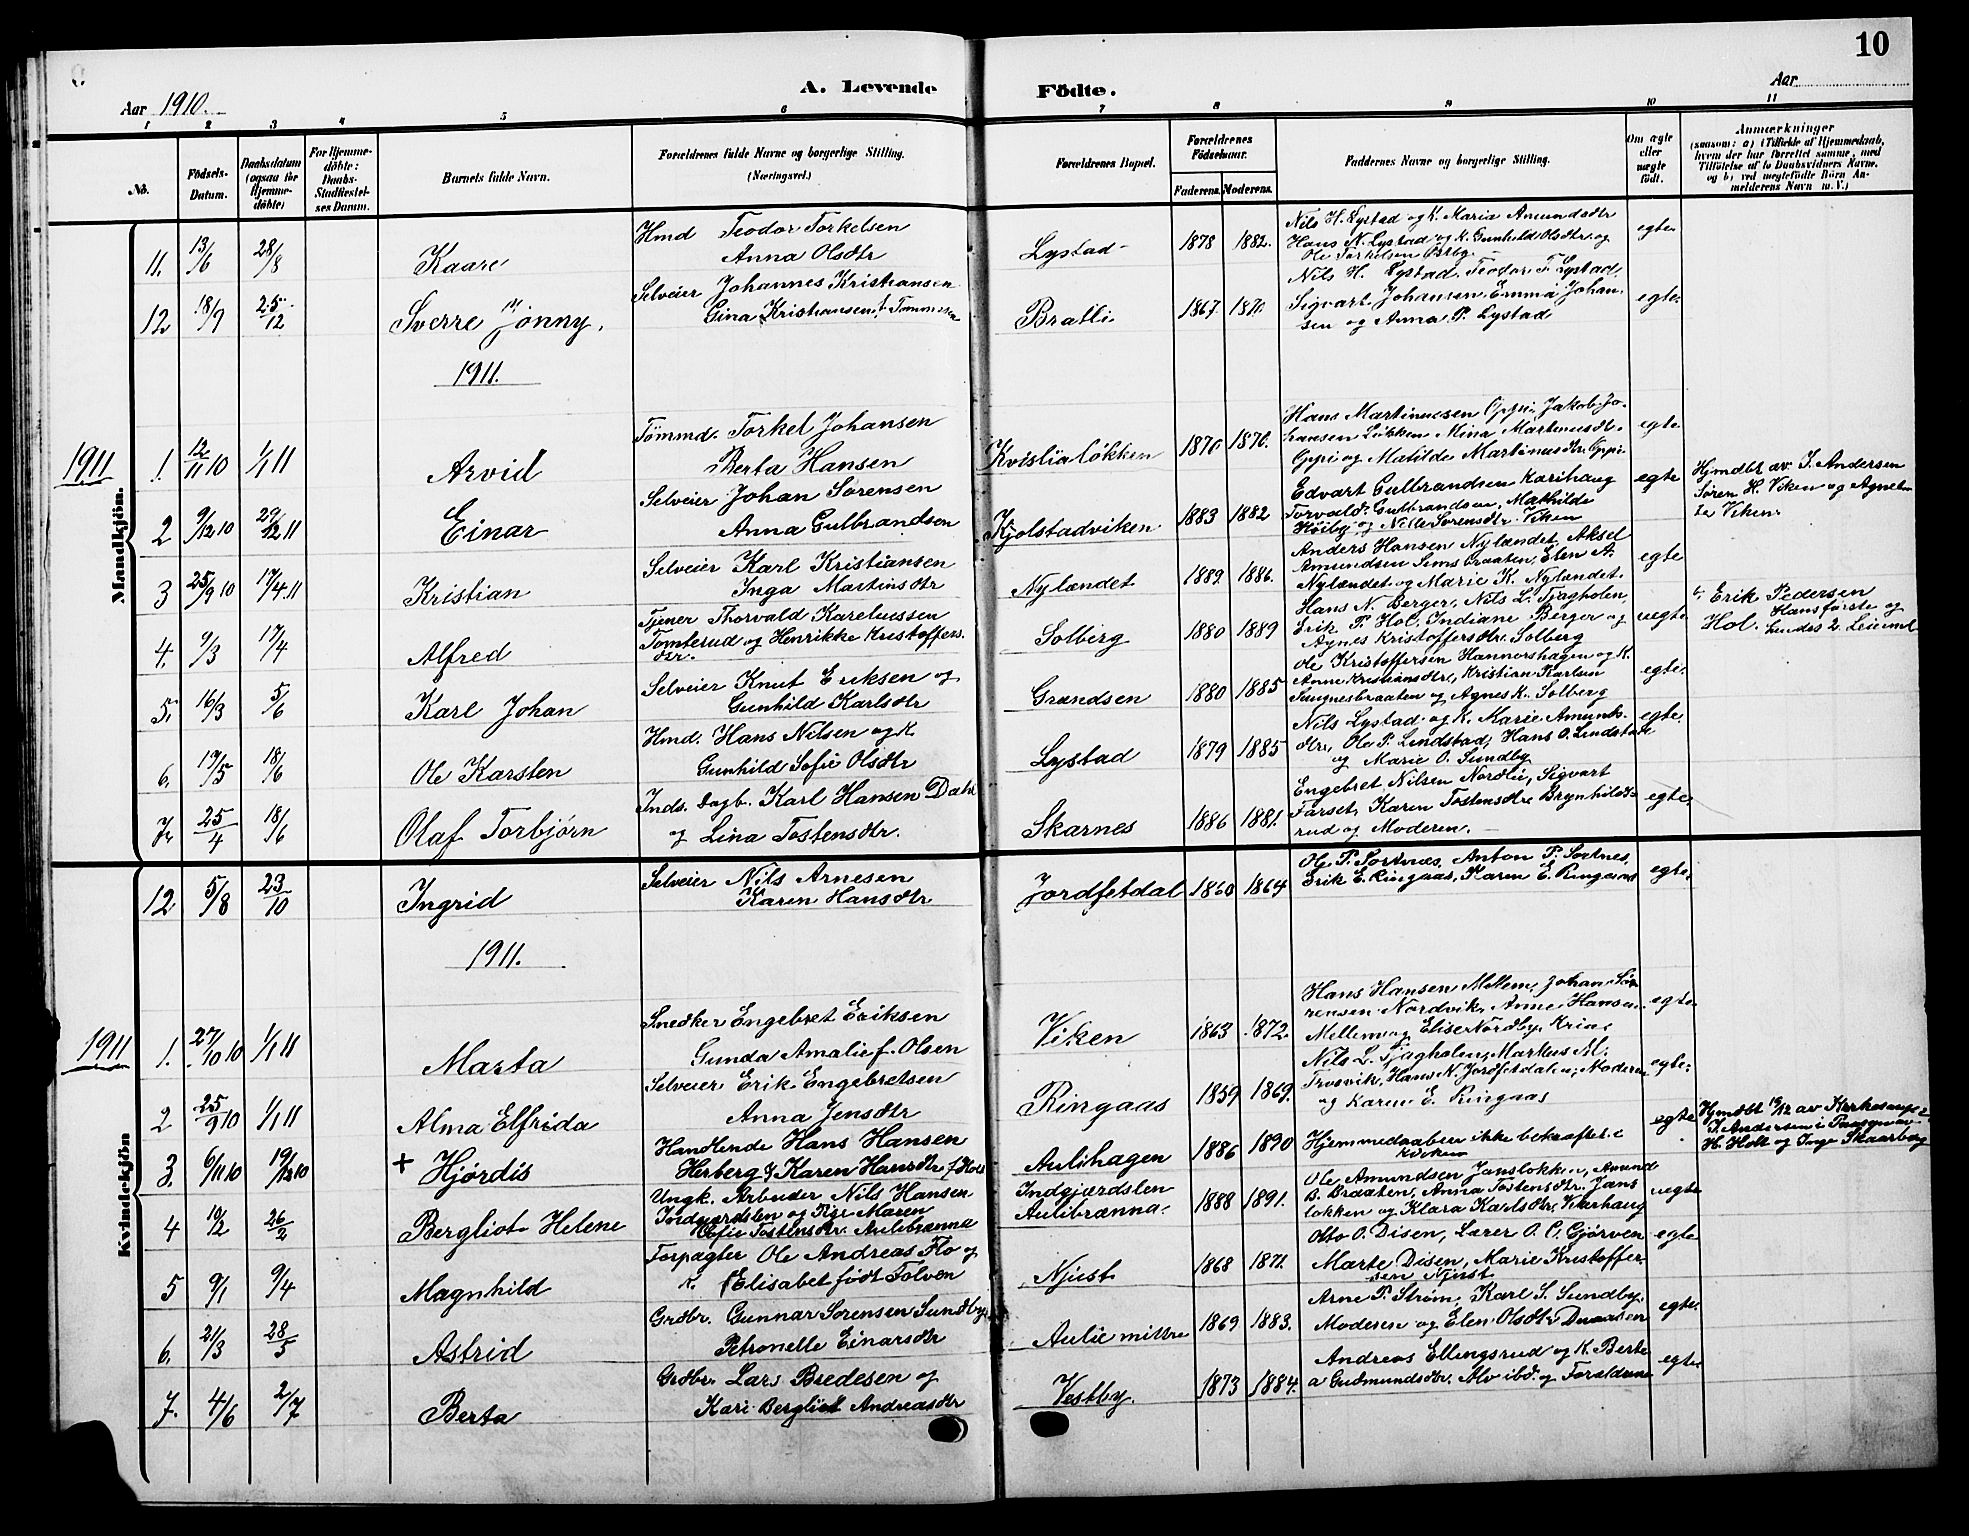 10
A. Levende Födte.
Aar 1910.
Aar
1 2 3 4 5 6 7 8 9 10 11
No.
Födsels-Datum.
Daabsdatum (ogsaa for Hjemme-döbte)
For Hjemme-döbte: Daabs-Stadfæstel-ses Datum.
Barnets fulde Navn.
Forældrenes fulde Navne og borgerlige Stilling. (Næringsvei.)
Forældrenes Bopæl.
Forældrenes Födselsaar.
Faderens. Moderens.
Faddernes Navne og borgerlige Stilling.
Om ægte eller uægte født.
Anmærkninger
(saasom: a) i Tilfælde af Hjemmedaab, hvem der har forrettet samme, med Tilföielse af to Daabsvidners Navne, og b) ved uægtefödte Börn An-melderens Navn m. V.)
Mandkjön.
11. 13/6 28/8 Kaare
Hmd Teodor Torkelsen
Anna Olsdtr
Lystad 1878 1882.
Nils H. Lystad og K. Maria Amundsdtr
Hans N. Lystad og K. Gunhild Olsdtr og
Ole Torkelsen Østby
egte
12 18/9 25/12 Sverre Jonny.
Selveier Johannes Kristiansen
Gina Kristiansen f. Tømmesen
Bratli 1867. 1870.
Nils H. Lystad, Teodor T. Lystad,
Sigvart Johansen, Emma Johan-
sen og Anna P. Lystad
egte
1911.
1911
1. 12/11 10 1/1 11 Arvid
Tömmd. Torkel Johansen
Berta Hansen
Kvislialökken 1870 1870.
Hans Martinussen Oppi, Jakob Jo-
hansen Løkken Mina Martinusdtr.
Oppi og Matilde Martinusdtr Oppi
egte
2 9/12 10 29/12 11 Einar
Selveier Johan Sørensen
Anna Gulbrandsen
Kjolstadviken 1883 1882
Edvart Gulbrandsen Karihaug
Torvald Gulbrandsen, Mathilde
Høiby og Nille Sørensdtr Viken
egte
Hjmdbt av J. Andersen
Søren H. Viken og Agnet-
te Viken
3 25/9 10 17/4 11 Kristian
Selveier Karl Kristiansen
Inga Martinsdtr
Nylændet 1889. 1886.
Anders Hansen Nylændet, Aksel
Amundsen Simsbraaten, Elen A.
Nylændet og Marie K. Nylændet.
egte
4. 9/3 17/4 Alfred
Tjener Thorvald Kareliussen
Tomterud og Henrikke Kristoffers-
dtr.
Solberg 1880 1889
Hans N. Berger, Nils L. Tjagholen,
Erik P. Hol, Indiane Berger og
Agnes Kristoffersdtr. Solberg
uegte
Erik Pedersen
Hol. Hans første og
hendes 2. Leierml
5. 16/3 5/6 Karl Johan
Selveier Knut Eriksen og
Gunhild Karlsdtr
Grændsen 1880 1885
Ole Kristoffersen Hannorshagen og K.
Anne Kristiansdtr, Kristian Karlsen
Sungnesbraaten og Agnes K. Solberg
egte.
6. 17/5 18/6 Ole Karsten
Hmd. Hans Nilsen og K
Gunhild Sofie Olsdtr
Lystad 1879 1885
Nils Lystad og K. Marie Amunds-
dtr, Ole P. Lindstad, Hans O. Lindstad
og Marie O. Sundby
egte
7. 25/4 18/6 Olaf Torbjørn
Inds. dagb. Karl Hansen Dahl
og Lina Tostensdtr.
Skarnes 1886 1881.
Engebret Nilsen Nordli, Sigvart
Farset, Karen Tostensdtr Brynhilds-
rud og Moderen.
egte
Kvindekjön
12 5/8 23/10 Ingrid
Selveier Nils Arnesen
Karen Hansdtr
Jordfetdal 1860 1864
Ole P. Sortnæs, Anton P. Sortnes,
Erik E. Ringaas, Karen E. Ringaas
egte
1911.
1911
1. 27/10 10 1/1 11 Marta
Snedker Engebret Eriksen
Gunda Amalie f. Olsen
Viken 1863 1872.
Hans Hansen Mellem, Johan Sø-
rensen Nordvik, Anne Hansen
Mellem og Elise Nordby, Krins
egte
2 25/9 10 1/1 11 Alma Elfrida
Selveier Erik Engebretsen
Anna Jensdtr
Ringaas 1859 1869.
Nils L. Tjagholen, Markus M.
Trosvik, Hans N. Jordfetdalen, Moderen
og Karen E. Ringaas
egte
3. 6/11 10 19/12 10 + Hjørdis
Handlende Hans Hansen
Herberg & Karen Hansdtr f. Holt
Aulihagen 1886 1890
Hjemmedaaben ikke bekræftet i
Kirken
egte
Hjmdbt 19/12 av Kirkesanger
J. Andersen i Paasyn av
H. Holt og Inga Skaarberg
4 10/2 26/2 Bergliot Helene
Ungk. Arbeider Nils Hansen
Indgjærdslen og Pige Maren
Sofie Tostensdtr. Aulibrænna
Indgjærdslen
Aulibrænna. 1888 1891.
Ole Amundsen Janslokken, Amund
B. Braaten, Anna Tostensdtr, Jans
lokken og Klara Karlsdtr, Vikerhaug
uegte
5 9/1 9/4 Magnhild
Forpagter Ole Andreas Flo og
K. Elisabet født Tolven
Njust 1868 1871.
Otto O. Disen, Lærer O. C. Gjørven
Marte Disen, Marie Kristoffer-
sen Njust
egte
6. 21/3 28/5 Astrid
Grdbr. Gunnar Sørensen Sundby
Petronelle Einarsdtr
Aulie mittre 1869 1883.
Arne P. Strøm, Karl S. Sundby,
Moderen og Elen Olsdtr
egte
7. 4/6 2/7 Berta
Grdbr. Lars Bredesen og
Kari Bergliot Andreasdtr
Vestby. 1873 1884.
Andreas Ellingsrud og K. Berte
a Gudmundsdtr. Alv ibd. og Forældrene
egte